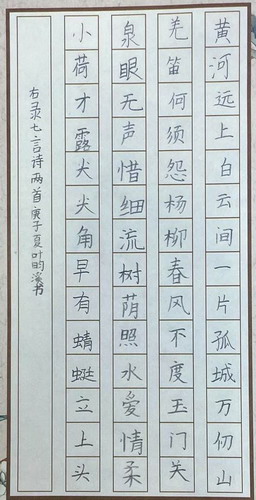 黄河远上白云间一片孤城万仞山
羌笛何须怨杨柳春风不度玉门关
泉眼无声惜细流树荫照水爱情柔
小荷才露尖尖角早有蜻蜓立上头
右录七言诗两首庚子夏叶昀溪书